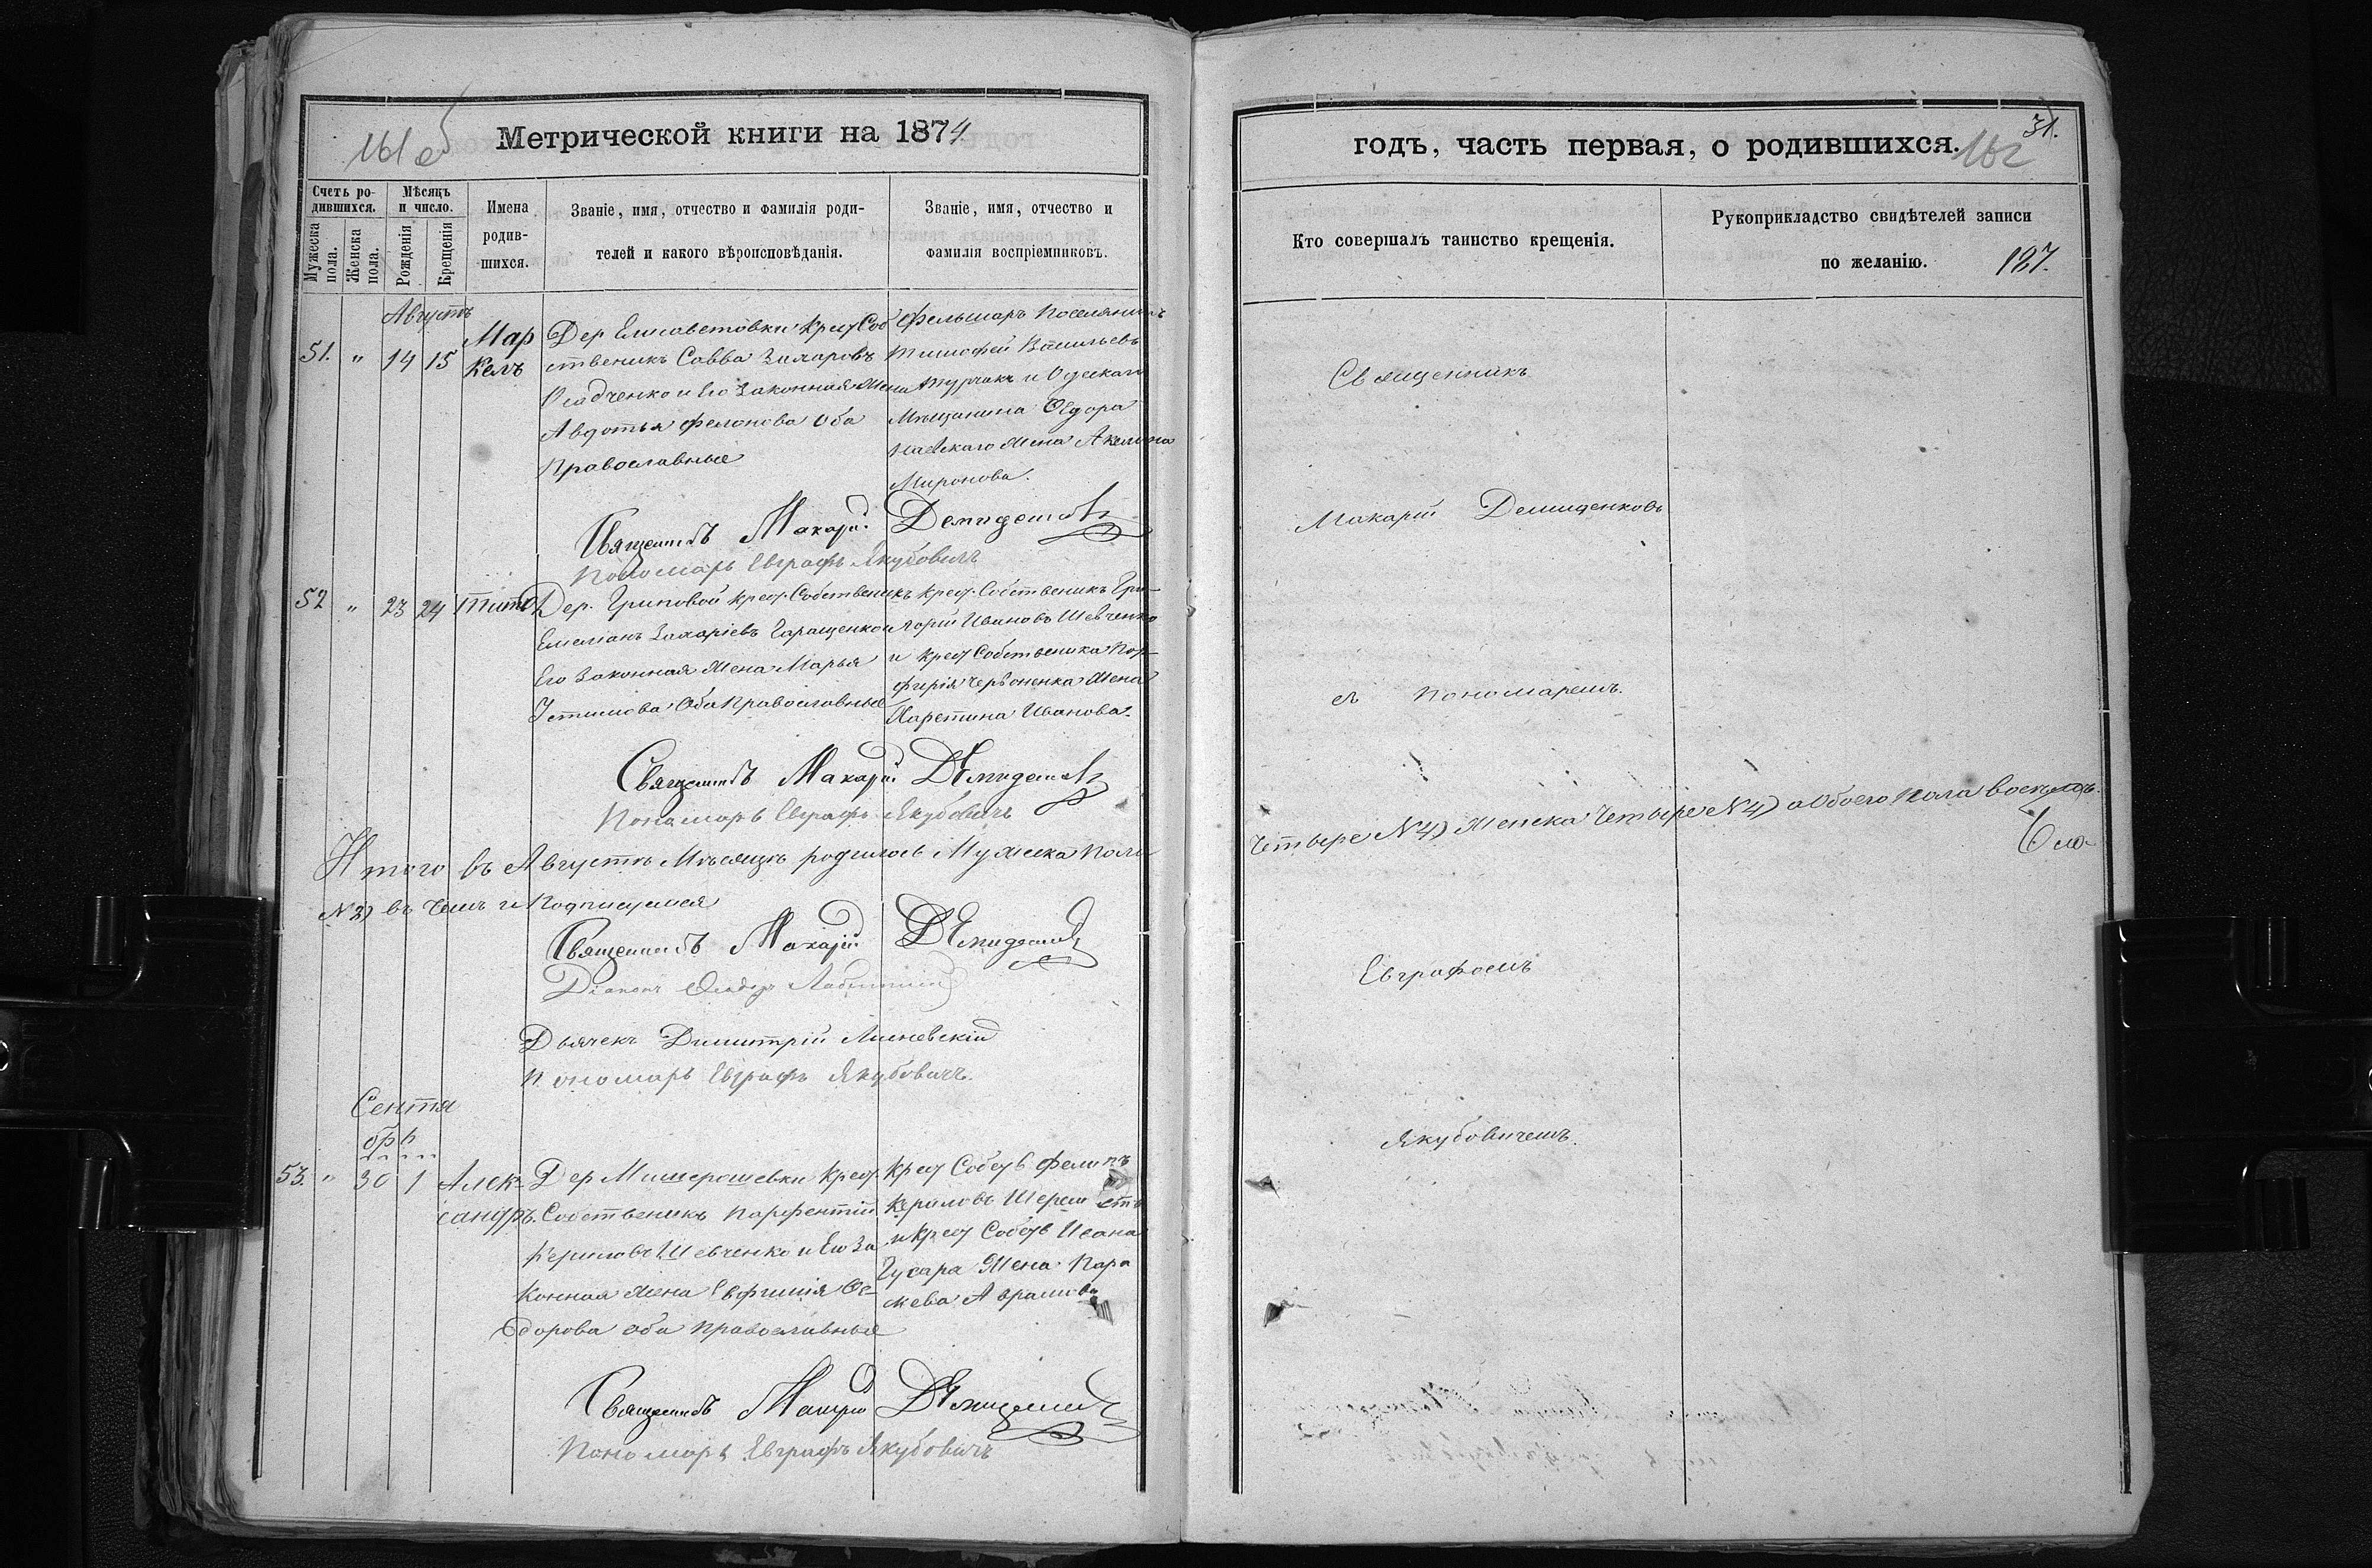 161 об
Метрической книги на 1874
Счетъ родившихся.
Мужеска пола.
Женска пола.
Мѣсяцъ и число.
Рожденія
Крещенія
Имена родившихся.
Званіе, имя, отчество и фамилія родителей и какого вѣроисповѣданія.
Званіе, имя, отчество и фамилія воспріемниковъ.
Августъ
51. " 14 15 Маркелъ
Дер Елисаветовки Крест Соб
ственикъ Савва Захаровъ
Осадченко и Его Законная Жена
Авдотья Филонова Оба
Православные
Фельшаръ Поселянинъ
Тимофей Васильевъ
и Одескаго
Мѣщанина Ѳедора
Жена Акелина
Миронова.
Священникъ Макарій Демиденковъ
Пономарь Евграфъ Якубовичъ
52 " 23 24 Титъ
Дер. Гриповой Крест. Собственикъ
Емеліанъ Захаріевъ Таращенко и
Его Законная Жена Марья
Устимова Оба Православные
Крест. Собственикъ Гри-
горій Ивановъ Шевченко
и Крест Собственика Пор-
фирія Червоненка Жена
Харетина Иванова.
Священникъ Макарій Демиденковъ
Пономарь Евграфъ Якубовичъ
Итого въ Августѣ Мѣсяцѣ родилось Мужеска Пола
въ Чемъ и Подписуемся
Священникъ Макарій Демиденковъ
Діаконъ
Дьячекъ Димитрій Линевскій
Пономарь Евграфъ Якубовичъ.
Сентя
брь
53. " 30 1 Алек-
сандръ.
Дер Мишерошевки Крест.
Собственикъ Парфентій
Кериловъ Шевченко и Его За
конная Жена Евфимія Ѳе-
дорова оба православные
Крест Собств Филипъ
Кериловъ
и Крест Собств Ивана
Гусара Жена Пара
скева Аврамова
Священникъ Макарій Демиденковъ
Пономарь Евграфъ Якубовичъ
годъ, часть первая, о родившихся.
31.
162
Кто совершалъ таинство крещенія.
Рукоприкладство свидѣтелей записи
по желанію.
127.
Священникъ
Макарій Демиденковъ
съ Пономаремъ.
Четыре N 4) Женска Четыре N 4) а Обоего Пола восемь
Евграфомъ
Якубовичемъ.